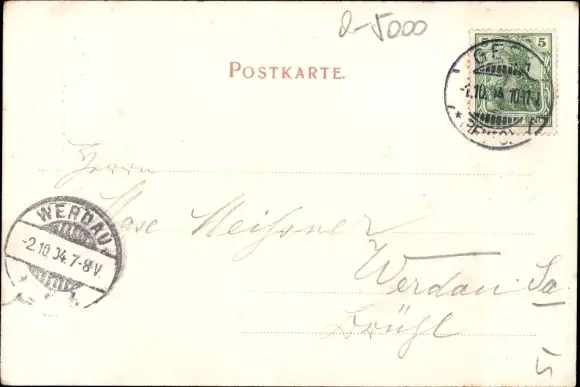 POSTKARTE.
5 5
-1.10.04 10-11
Herrn
Meißner
Werdau Sa
Brühl
WERDAU
-2.10.04.7-8V.